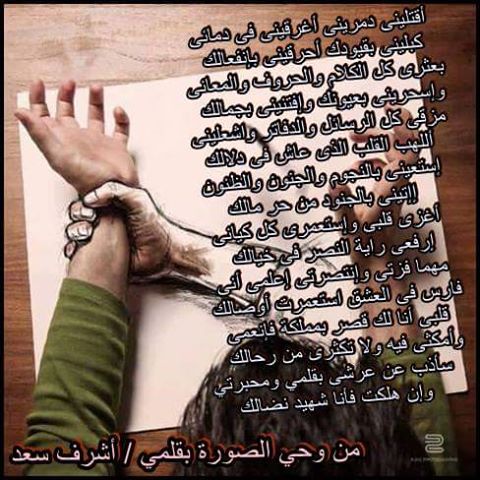 أقتلينى دمرينى أغرقينى فى دمائى
كبلينى بقيودك أحرقينى بإنفعالك
بعثرى كل الكلام والحروف والمعانى
وإسحرينى بعيونك وإفتنينى بجمالك
مزقى كل الرسائل والدفاتر واشعلينى
أللهب القلب الذى عاش فى دلالك
إستعينى بالنجوم والجنون والظنون
إإتينى بالجنود من حر مالك
أغزى قلبى وإستعمرى كل كيانى
إرفعى راية النصر فى خيالك
مهما فزتى وإنتصرتى إعلمى أنى
فارس فى العشق استعمرت أوصالك
قلبى أنا لك قصر بمملكة فانعمى
وأمكثى فيه ولا تكثرى من رحالك
سأذب عن عرشى بقلمي ومحبرتي
وإن هلكت فأنا شهيد نضالك
من وحي الصورة بقلمي / أشرف سعد